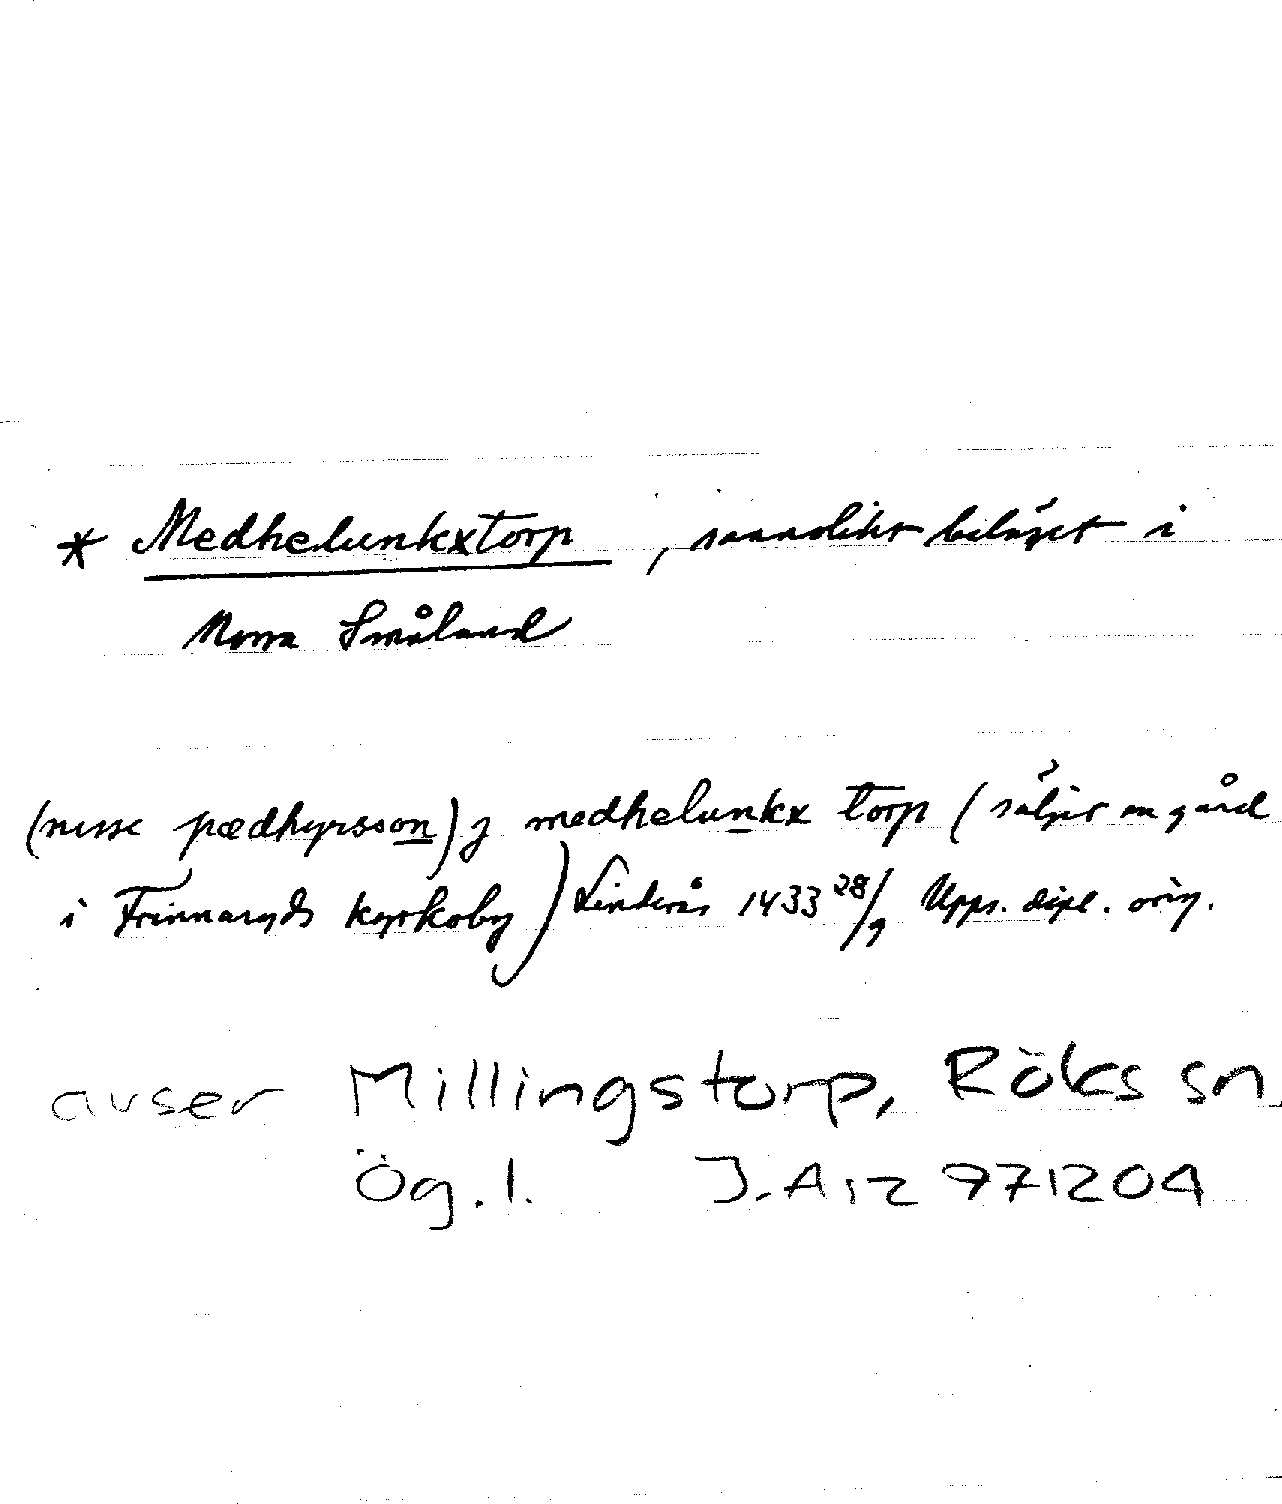 * Medhelunkxtorp, sannolikt beläget i
Norra Småland
(nisse pædhyrsson) j medhelunkx torp (säljer en gård
i Frinnaryds kyrkoby) Linderås 1433 28/9 Upps. dipl. orig.
avser Millingstorp, Röks sn,
Ög. l. J. A 12 971204